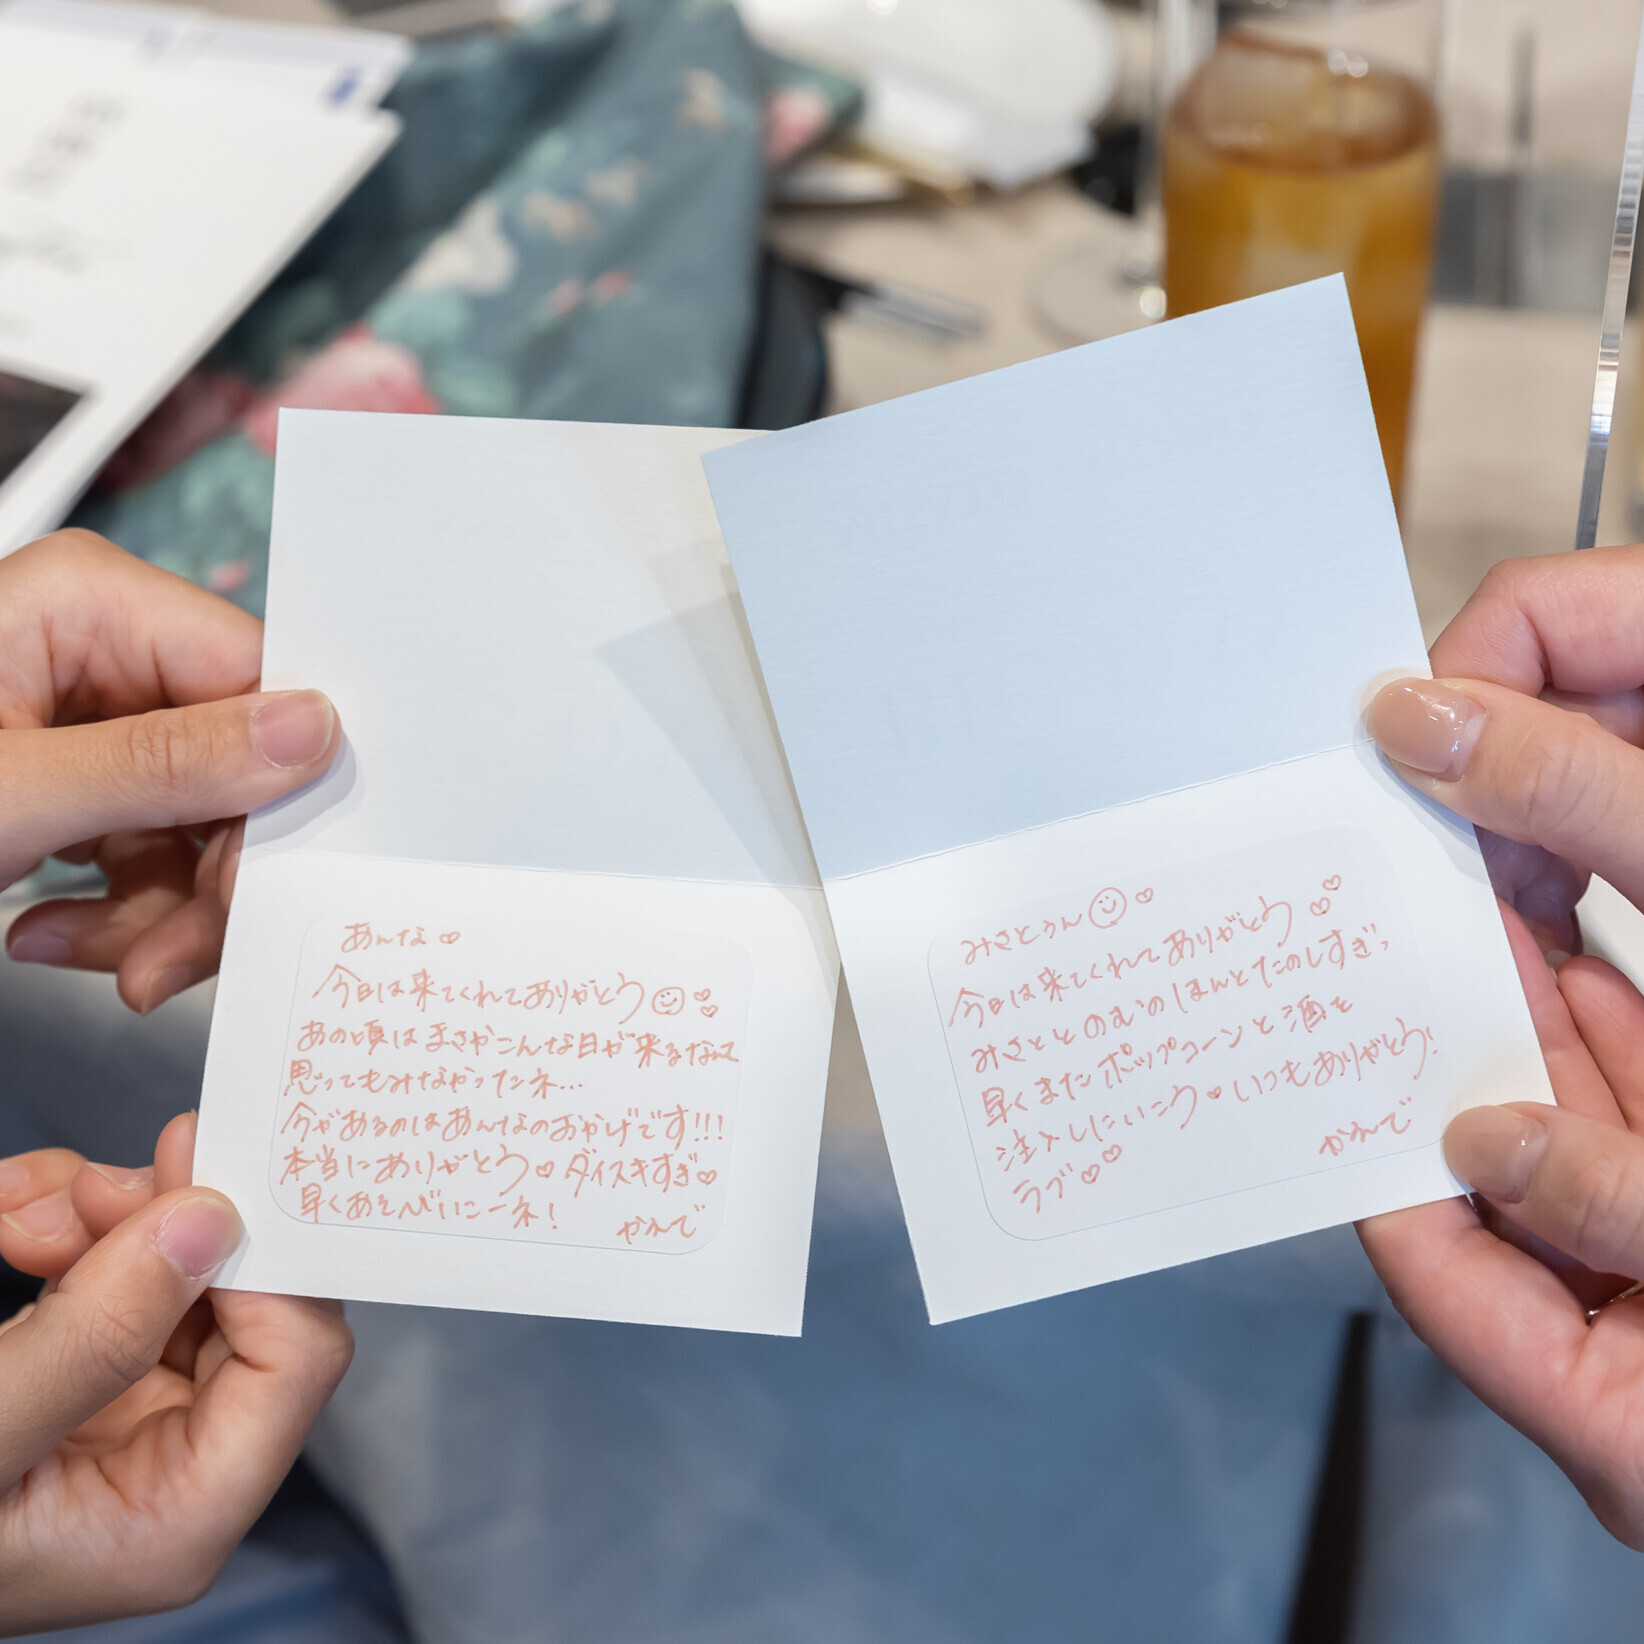 あんな♡
今日は来てくれてありがとう☺♡♡
あの頃はまさかこんな日が来るなんて
思ってもみなかったネ...
今があるのはあんなのおかげです!!!
本当にありがとう♡ダイスキすぎ♡
早くあそびいこーネ!
かえで
みさとぅん☺♡
今日は来てくれてありがとう♡♡
みさととのむのほんとたのしすぎっ
早くまたポップコーンと酒を
注入しにいこう♥いつもありがとう!
ラブ♡♡
かえで